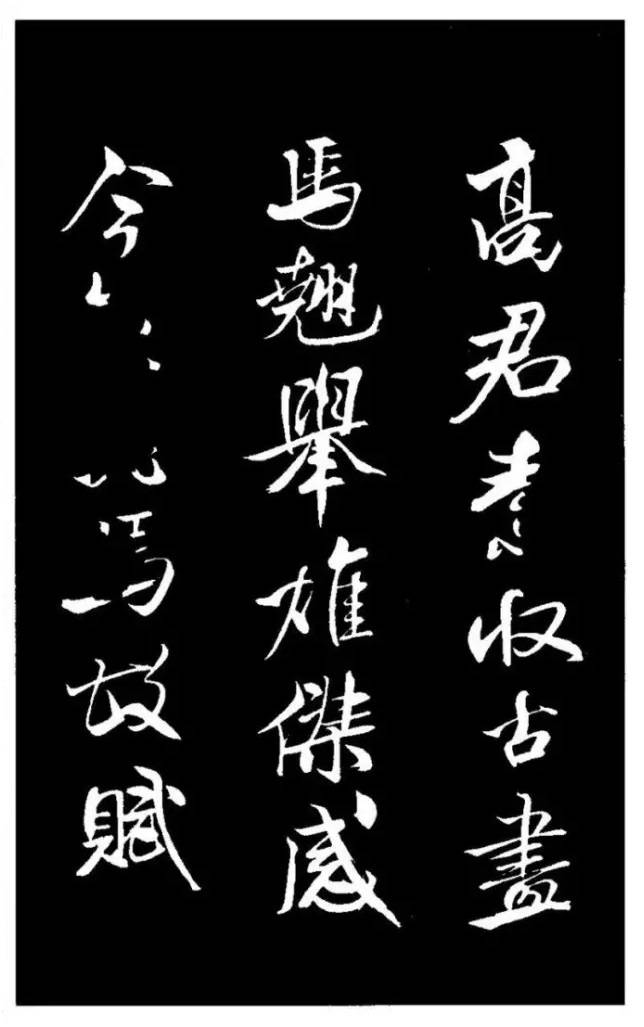 高君素收古畫
馬翹舉雄傑感
今馬故賦